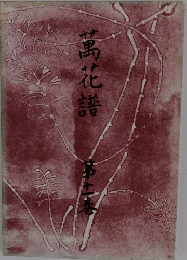 萬花譜
第十一卷